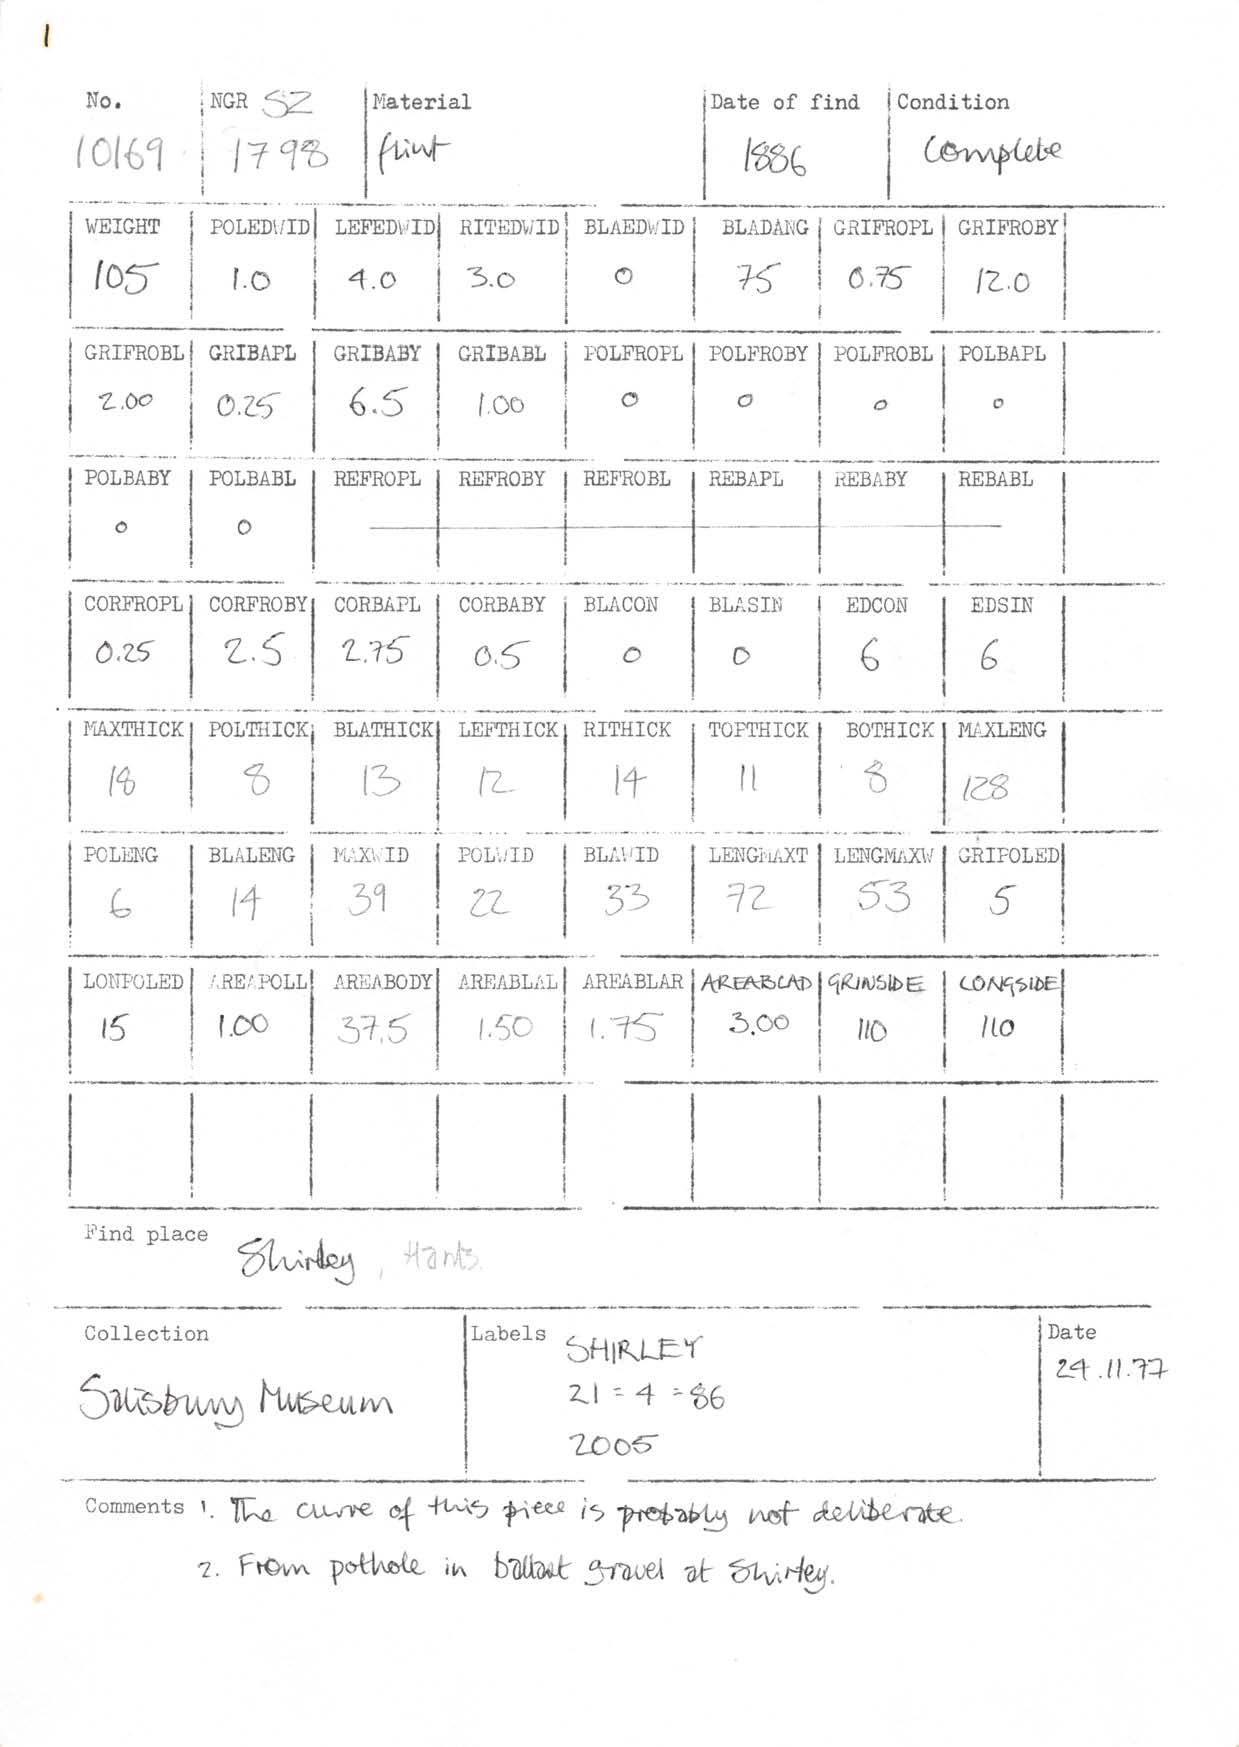 1
No. NGR SZ Material Date of find Condition
10169 1798 flint 1886 Complete
WEIGHT POLEDWID LEFEDWID RITEDWID BLAEDWID BLADANG GRIFROPL GRIFROBY
105 1.0 4.0 3.0 0 75 0.75 12.0
GRIFROBL GRIBAPL GRIBABY GRIBABL POLFROPL POLFROBY POLFROBL POLBAPL
2.00 0.25 6.5 1.00 0 0 0 0
POLBABY POLBABL REFROPL REFROBY REFROBL REBAPL REBABY REBABL
0 0
CORFROPL CORFROBY CORBAPL CORBABY BLACON BLASIN EDCON EDSIN
0.25 2.5 2.75 0.5 0 0 6 6
MAXTHICK POLTHICK BLATHICK LEFTHICK RITHICK TOPTHICK BOTHICK MAXLENG
18 8 13 12 14 11 8 128
POLENG BLALENG MAXWID POLWID BLAWID LENGMAXT LENGMAXW GRIPOLED
6 14 39 22 33 72 53 5
LONPOLED AREAPOLL AREABODY AREABLAL AREABLAR AREABLAD GRINSIDE LONGSIDE
15 1.00 37.5 1.50 1.75 3.00 110 110
Find place Shirley, Hants.
Collection Labels SHIRLEY Date
Salisbury Museum 21 = 4 = 86 24.11.77
2005
Comments 1. The curve of this piece is probably not deliberate.
2. From pothole in ballast gravel at Shirley.